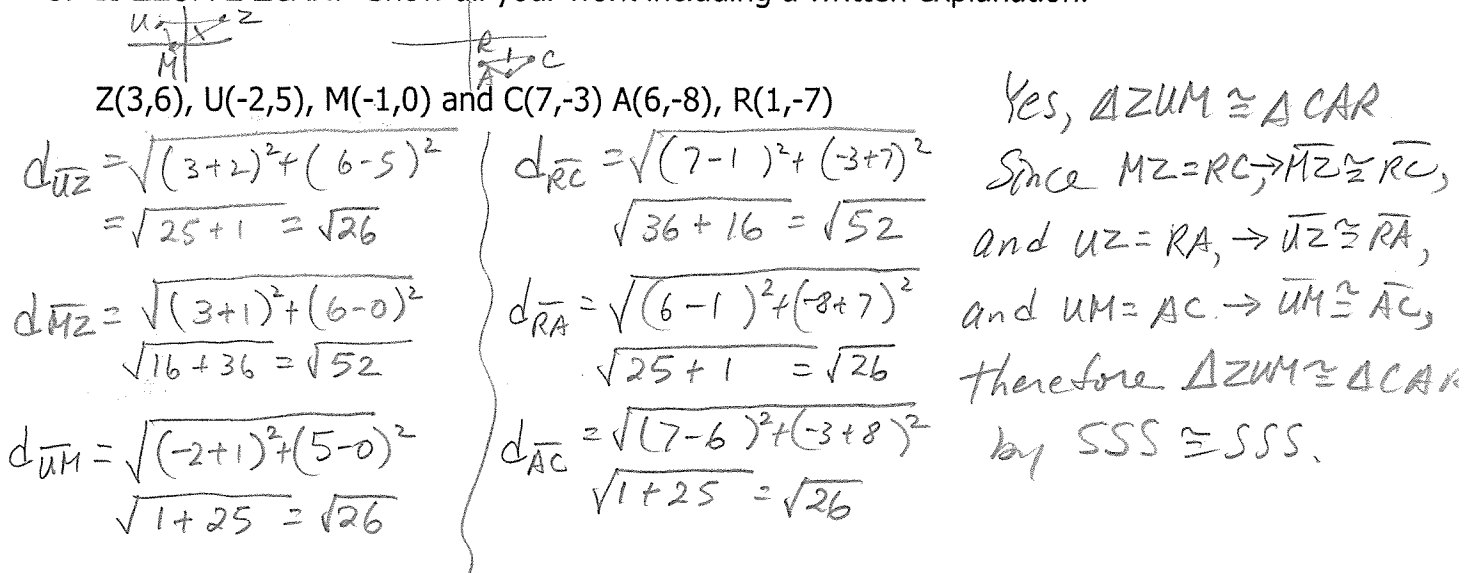 U Z
M
R
C
A
Z(3,6), U(-2,5), M(-1,0) and C(7,-3) A(6,-8), R(1,-7)
d_UZ = √((3+2)²+(6-5)²
= √25+1 = √26
d_MZ = √(3+1)²+(6-0)²
√16+36 = √52
d_UM = √(-2+1)²+(5-0)²
√1+25 = √26
d_RC = √(7-1)²+(-3+7)²
√36+16 = √52
d_RA = √(6-1)²+(-8+7)²
√25+1 = √26
d_AC = √(7-6)²+(-3+8)²
√1+25 = √26
Yes, ΔZUM ≅ ΔCAR
Since MZ=RC,→M̅Z̅≅R̅C̅,
and UZ=RA,→U̅Z̅≅R̅A̅,
and UM=AC→U̅M̅≅A̅C̅,
therefore ΔZUM≅ΔCAR
by SSS ≅ SSS.